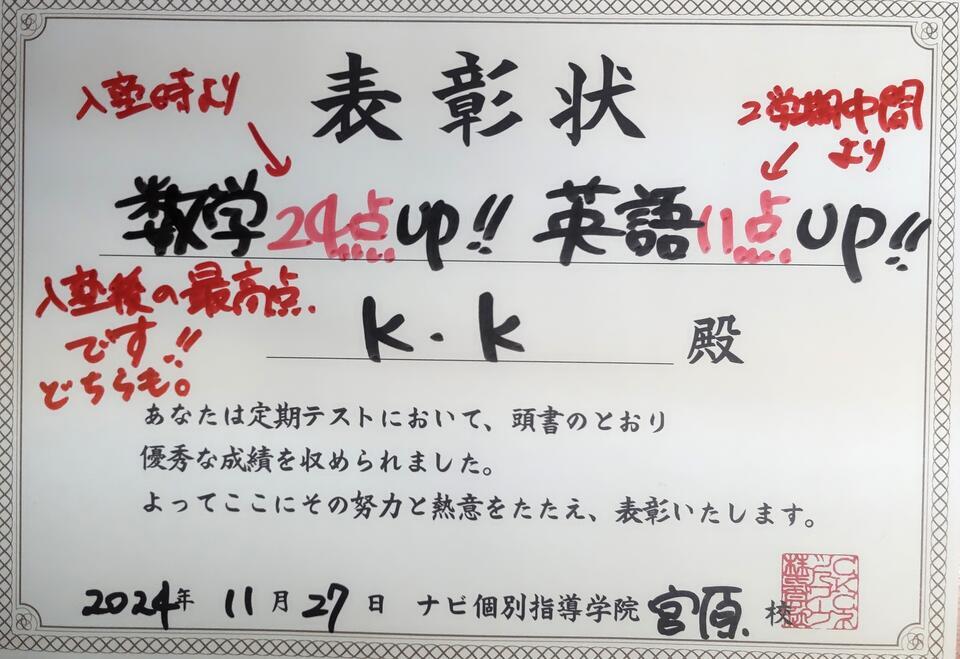 表彰状
入塾時より
2学期中間
より
数学24点up!! 英語11点up!!
入塾後の最高点.
です!!
どちらも。
K・K 殿
あなたは定期テストにおいて、頭書のとおり
優秀な成績を収められました。
よってここにその努力と熱意をたたえ、表彰いたします。
2024年 11月27日 ナビ個別指導学院 宮原. 校